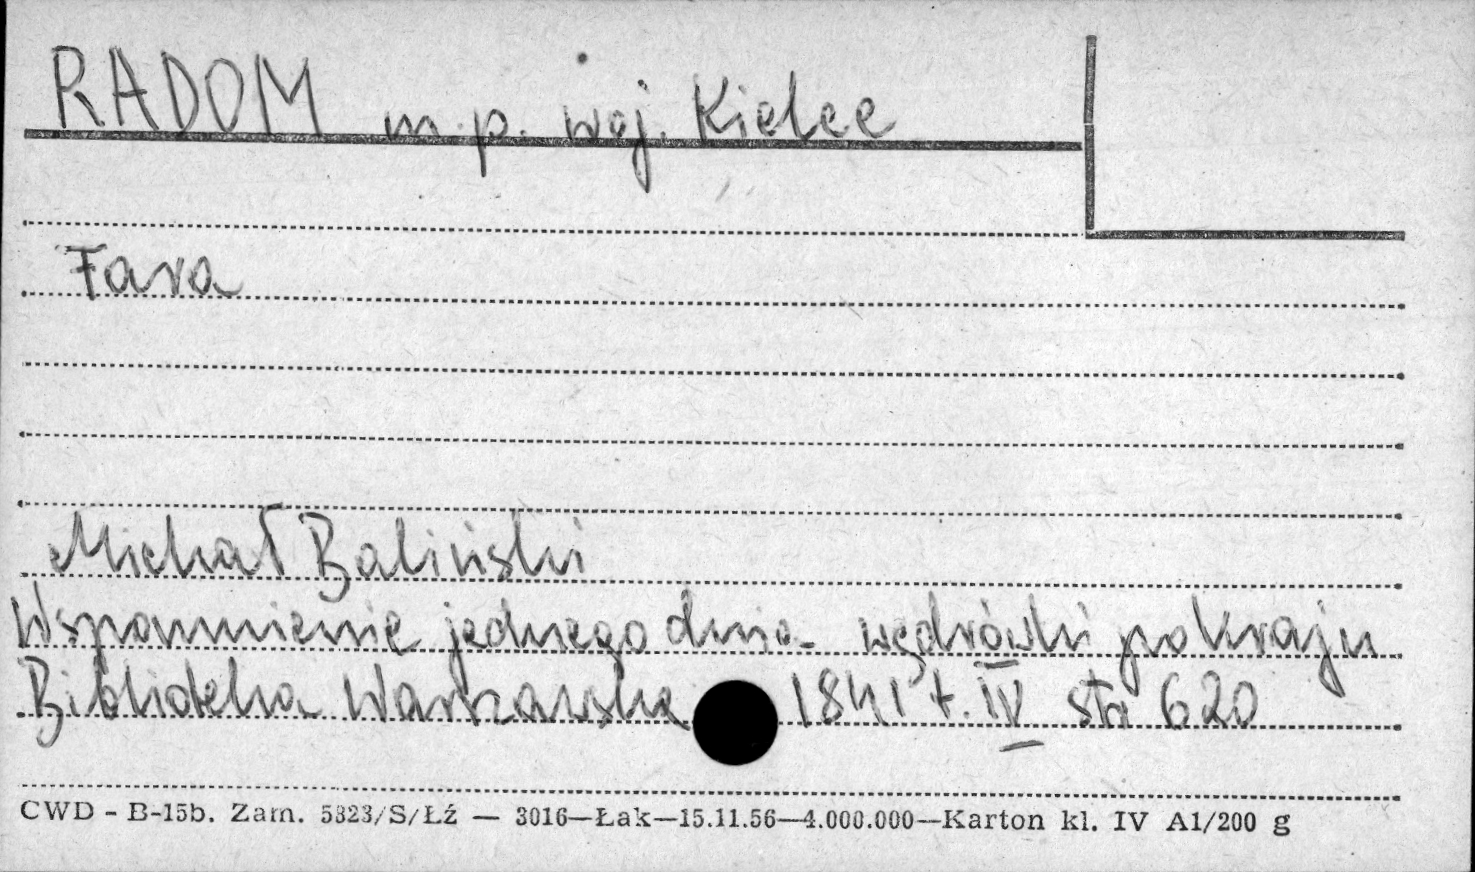 RADOM m. p. woj. Kielce
Fara
Michał Baliński
Wspomnienie jednego dnia wędrówki po kraju
Biblioteka Warszawska 1841 t. IV str 620
CWD - B-15b. Zam. 5323/S/Łź — 3016—Łak—15.11.56—4.000.000—Karton kl. IV A1/200 g